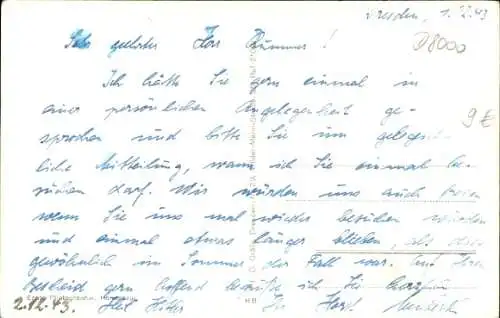 Dresden, 1.12.43
D8000
Sehr geehrter Herr Kümmer!
Ich hätte Sie gern einmal in
einer persönlichen Angelegenheit ge-
sprochen und bitte Sie um gelegent-
9€
liche Mitteilung, wann ich Sie einmal be-
suchen darf. Wir würden uns auch freuen
wenn Sie uns mal wieder besuchen würden
und einmal etwas länger blieben, als dies
gewöhnlich im Sommer der Fall war. Auf Ihren
Bescheid gern hoffend begrüße ich Sie herzlich
2.12.43. Heil Hitler Ihr Horst